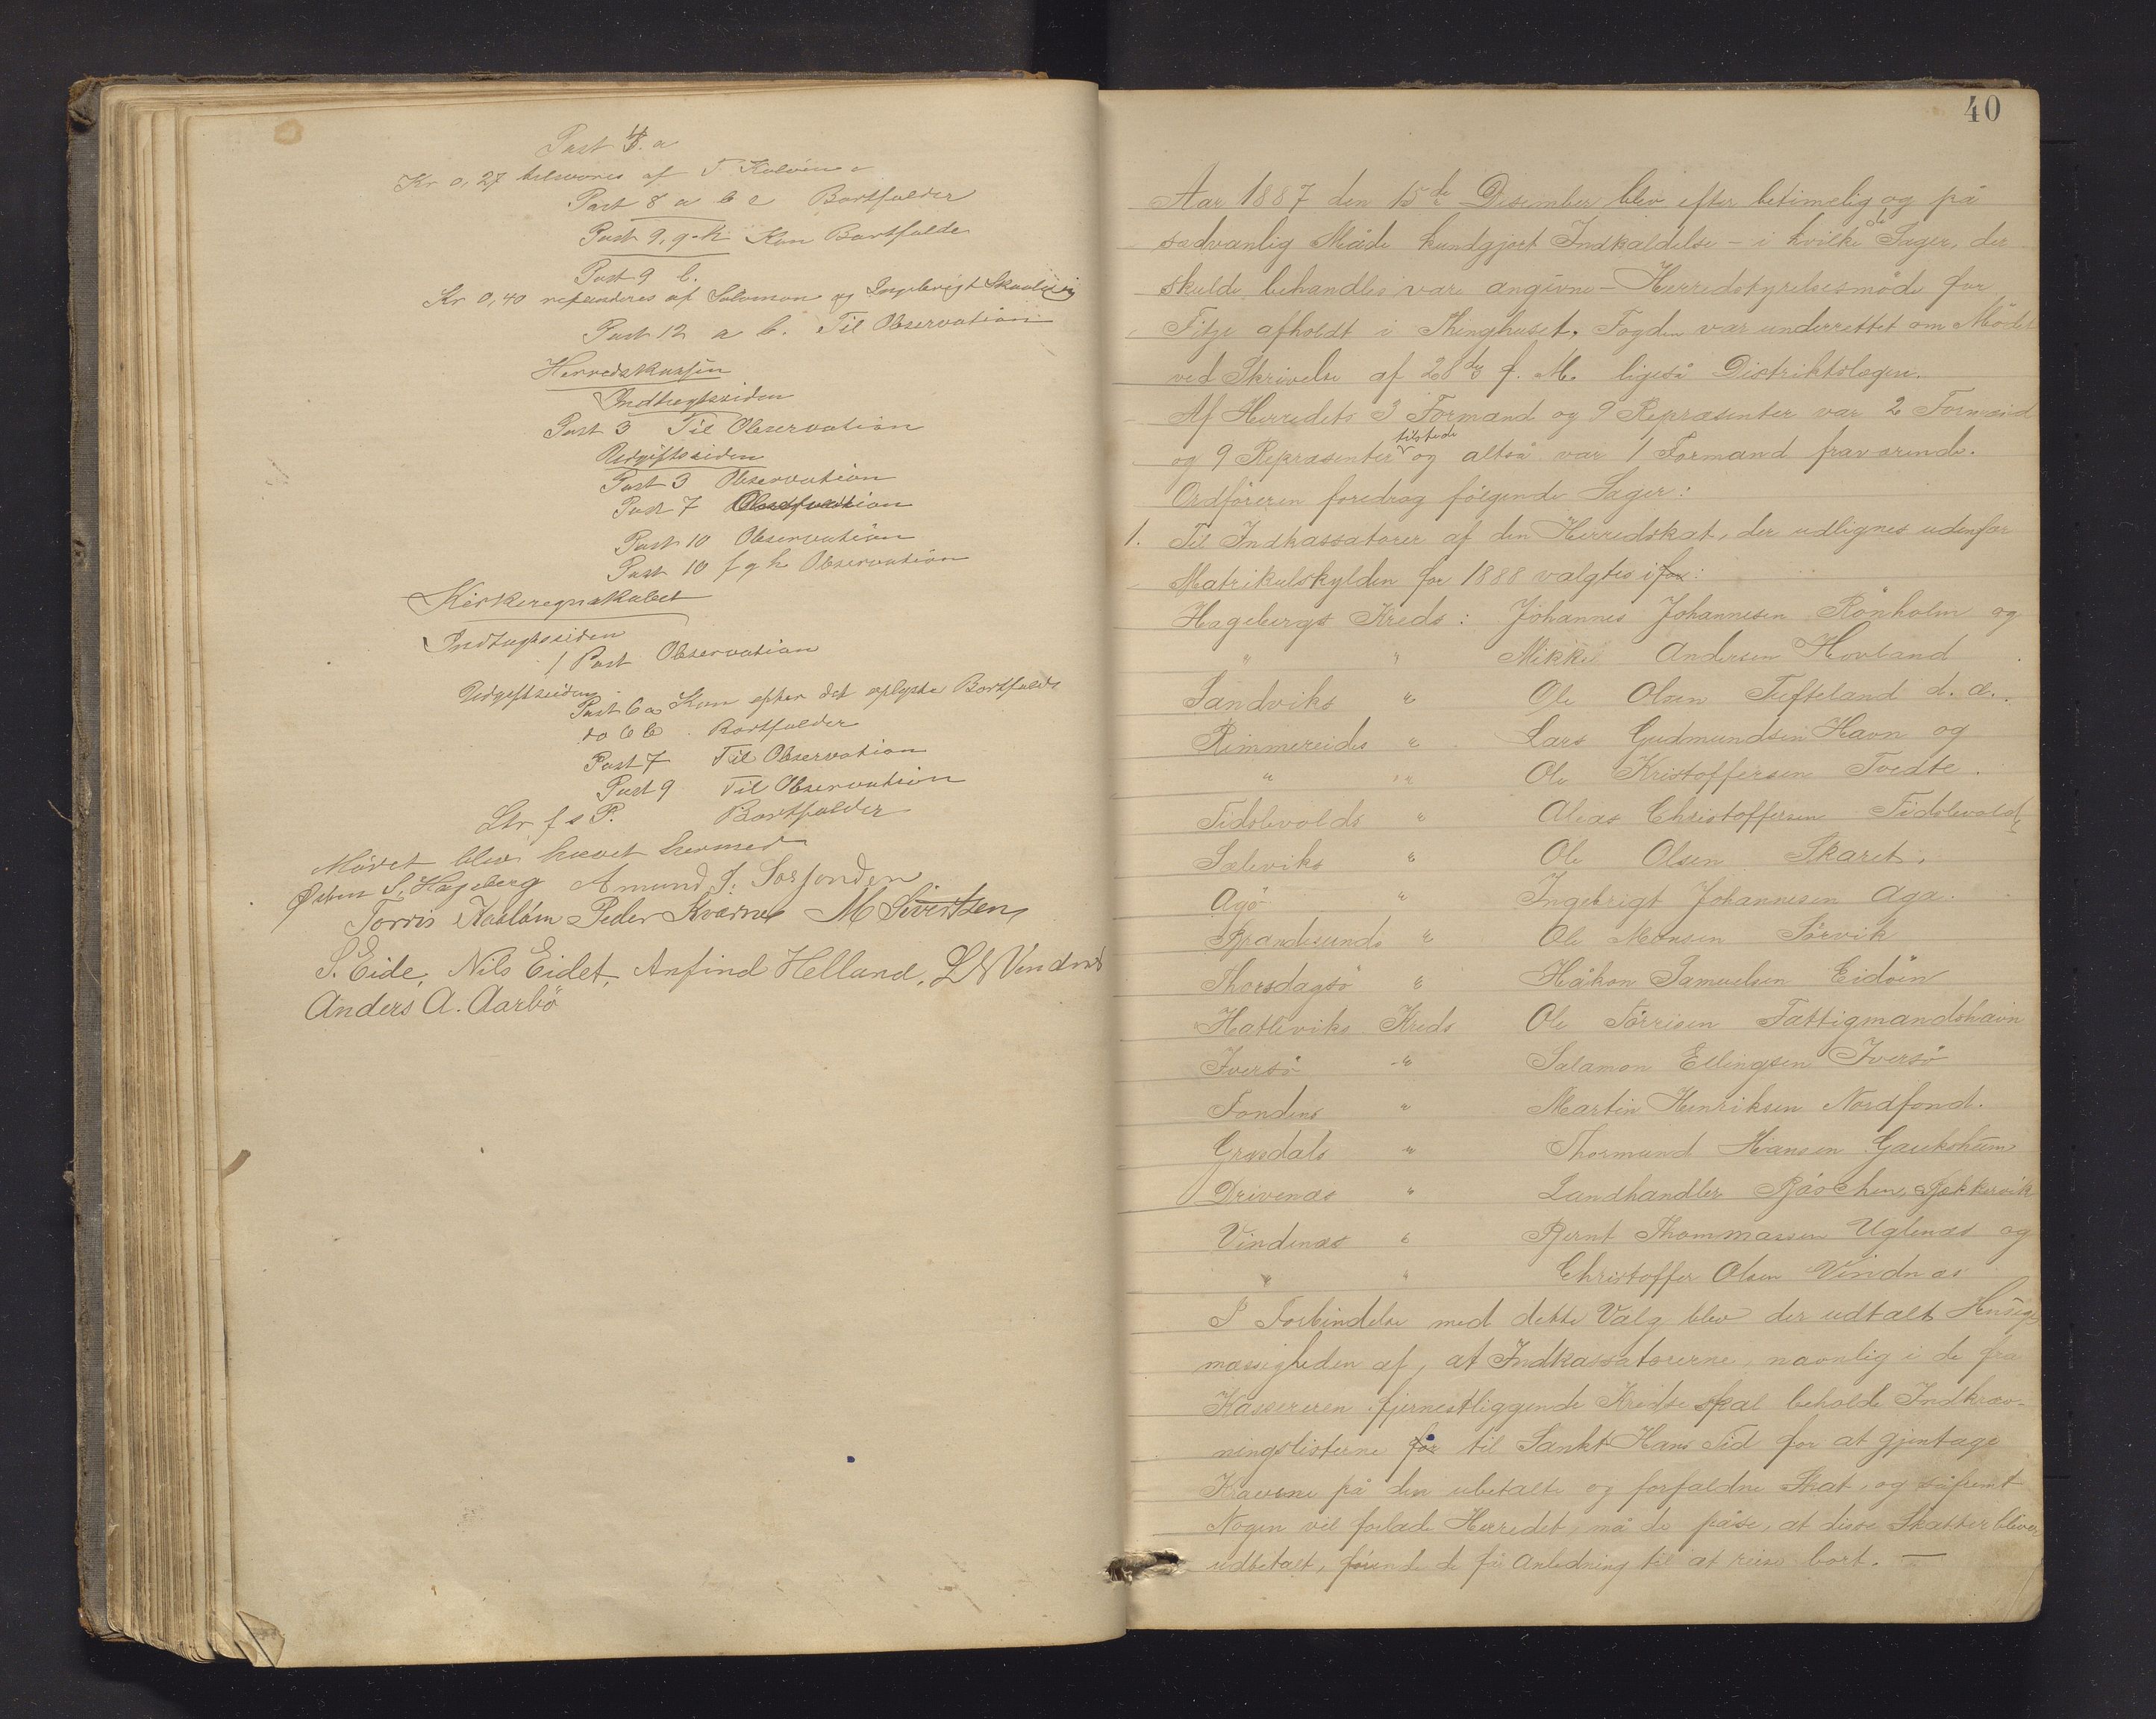 Post 4. a
Kr 0,27 tilsvares af T. Kaløen
Post 8 a b c Bortfalder
Post 9, g-k Kan Bortfalde
Post 9 b.
Kr 0,40 refunderes af Salomon og Ingebrigt
Post 12 a b. Til Observation
Herredskassen
Indtægtssiden
Post 3 Til Observation
Udgiftssiden
Post 3 Observation
Post 7
Post 10 Observation
Post 10 f g h Observation
Kirkeregnskabet
Indtægtssiden
1 Post Observation
Udgiftssiden
Post 6 a Kan efter det oplyste Bortfalde
do 6 b Bortfalder
Post 7 Til Observation
Post 9 Til Observation
Bortfalder
Mødet blev hævet hermed
Østen S. Hageberg Amund J. Sørfonden
Torris Kaaløen Peder Kvernes M Sivertsen
S. Eide, Nils Eidet, Anfind Helland, L N Vendnes
Anders A. Aarbö
40
Aar 1887 den 15de Desember blev efter betimelig og på
sædvanlig Måde kundgjort Indkaldelse – i hvilke de Sager, der
skulde behandles vare angivne – Herredstyrelsesmöde for
Fitje afholdt i Thinghuset. Fogden var underrettet om Mödet
ved Skrivelse af 28de f. M. ligeså Distriktslægen.
Af Herredets 3 Formænd og 9 Repræsenter var 2 Formænd
og 9 Repræsenter tilstede og altså var 1 Formand fraværende.
Ordföreren foredrog fölgende Sager:
1. Til Indkassatorer af den Herredskat, der udlignes udenfor
Matrikulskylden for 1888 valgtes i for:
Hagebergs Kreds: Johannes Johannesen Rönholm og
" " Mikkel Andersen Hovland
Sandviks " Ole Olsen Tufteland d. æ.
Rimmereids " Lars Gudmundsen Havn og
" " Ole Kristoffersen Tvedte.
Tidslevolds " Aleas Christoffersen Tidslevold
Sæleviks " Ole Olsen Skaret.
Agö " Ingebrigt Johannesen Aga.
Brandesunds " Ole Monsen Sörvik
Thorsdagsö " Håkon Samuelsen Eidöen
Hatleviks Kreds Ole Törrisen Fattigmandshavn
Iversö " Salamon Ellingsen Iversö
Fondens " Martin Henriksen Nordfond.
Grysdals " Thormund Hansen Gauksheim
Drivenæs " Landhandler
Vindenæs " Bernt Thommassen Uglenæs og
" " Christoffer Olsen Vindnæs
I Forbindelse med dette Valg blev der udtalt Hensigts
mæssigheden af, at Indkassatorerne, navnlig i de fra
Kassereren fjernestliggende Kredse skal beholde Indkræv-
ningslisterne for til Sankt Hans Tid for at gjentage
Kravene på den ubetalte og forfaldne Skat, og såfremt
Nogen vil forlade Herredet, må de påse, at disse Skatter bliver
udbetalt, förend de få Anledning til at reise bort. —